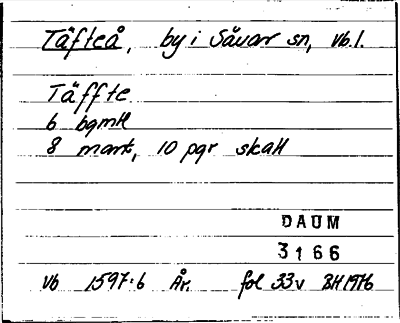 Täfteå, by i Sävar sn, Vb. l.
Täffte
6 bgmtl
8 mark, 10 pgr skatt
DAUM
3166
Vb 1597:6 År. fol 33v BH 1976